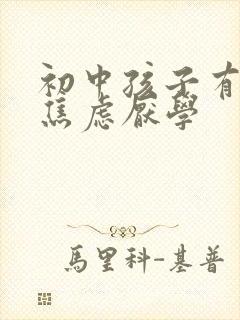 初中孩子有
焦虑厌學
馬里科-基普